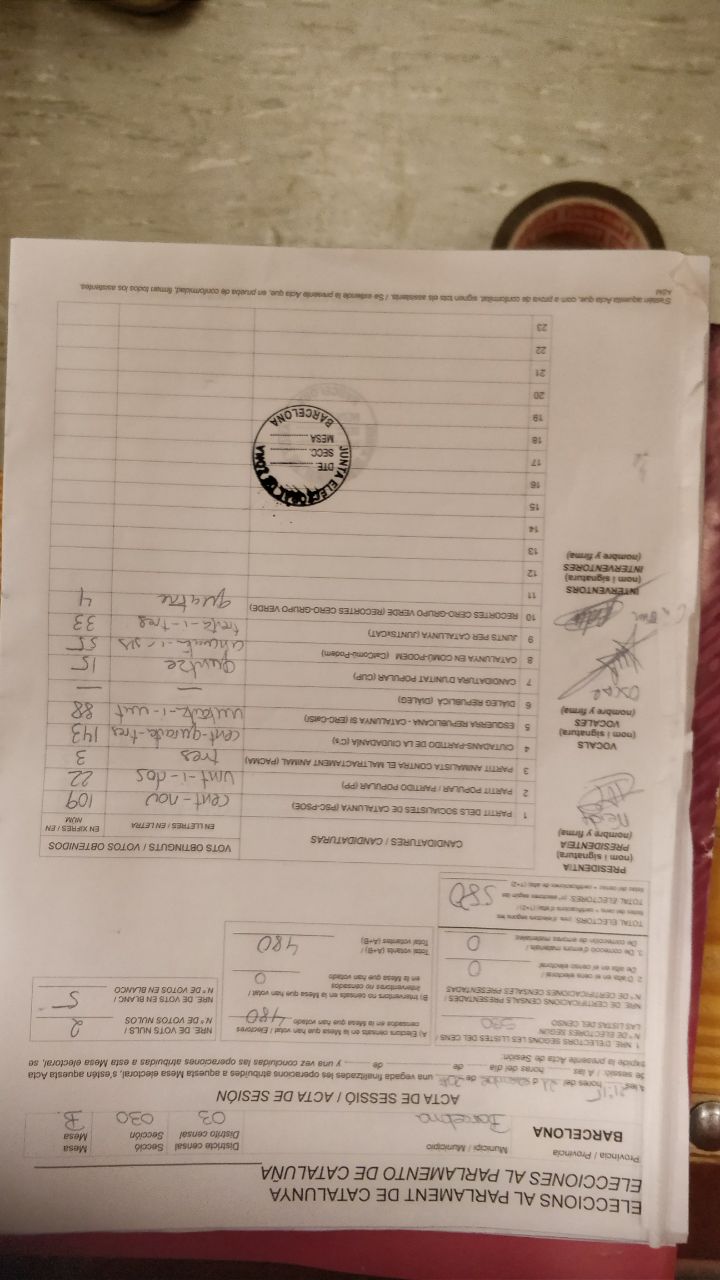 ELECCIONS AL PARLAMENT DE CATALUNYA
ELECCIONES AL PARLAMENTO DE CATALUÑA
Província / Provincia
BARCELONA
Municipi / Municipio
Barcelona
Districte censal Secció Mesa
Distrito censal Sección Mesa
03 030 B
ACTA DE SESSIÓ / ACTA DE SESIÓN
A les 21:15 hores del 21 d desembre de una vegada finalitzades les operacions atribuïdes a aquesta Mesa electoral, s'estén aquesta Acta
de sessió. / A las horas del día de de , y una vez concluidas las operaciones atribuidas a esta Mesa electoral, se
expide la presente Acta de Sesión:
1 NRE. D'ELECTORS SEGONS LES LLISTES DEL CENS /
N º DE ELECTORES SEGÚN
LAS LISTAS DEL CENSO 580
NRE. DE CERTIFICACIONS CENSALS PRESENTADES /
N º DE CERTIFICACIONES CENSALES PRESENTADAS
2. D'alta en el cens electoral /
De alta en el censo electoral 0
3. De correcció d'errors materials /
De corrección de errores materiales 0
TOTAL ELECTORS, nre. d'electors segons les
llistes del cens + certificacions d'alta (1+2) /
TOTAL ELECTORES, nº electores según las
listas del censo + certificaciones de alta (1+2) 580
A) Electors censats en la Mesa que han votat / Electores
censados en la Mesa que han votado 480
B) Interventors no censats en la Mesa que han votat /
Interventores no censados
en la Mesa que han votado 0
Total votants (A+B) /
Total votantes (A+B) 480
NRE. DE VOTS NULS /
N º DE VOTOS NULOS 2
NRE. DE VOTS EN BLANC /
N º DE VOTOS EN BLANCO 5
PRESIDENT/A
(nom i signatura)
PRESIDENTE/A
(nombre y firma)
VOCALS
(nom i signatura)
VOCALES
(nombre y firma)
OSCAR
INTERVENTORS
(nom i signatura)
INTERVENTORES
(nombre y firma)
CANDIDATURES / CANDIDATURAS
VOTS OBTINGUTS / VOTOS OBTENIDOS
EN LLETRES / EN LETRA EN XIFRES / EN NÚM
1 PARTIT DELS SOCIALISTES DE CATALUNYA (PSC-PSOE) cent-nou 109
2 PARTIT POPULAR / PARTIDO POPULAR (PP) vint-i-dos 22
3 PARTIT ANIMALISTA CONTRA EL MALTRACTAMENT ANIMAL (PACMA) tres 3
4 CIUTADANS-PARTIDO DE LA CIUDADANÍA (C's) cent-quaranta-tres 143
5 ESQUERRA REPUBLICANA - CATALUNYA SÍ (ERC-CatSí) vuitanta-i-vuit 88
6 DIÀLEG REPUBLICÀ (DIÀLEG) — —
7 CANDIDATURA D'UNITAT POPULAR (CUP) quinze 15
8 CATALUNYA EN COMÚ-PODEM (CatComú-Podem) cinquanta-i-sis 55
9 JUNTS PER CATALUNYA (JUNTSxCAT) trenta-i-tres 33
10 RECORTES CERO-GRUPO VERDE (RECORTES CERO-GRUPO VERDE) quatre 4
11
12
13
14
15
16
17
18
19
20
21
22
23
JUNTA ELECTORAL DE ZONA
DTE.
SECC.
MESA
BARCELONA
S'estén aquesta Acta que, com a prova de conformitat, signen tots els assistents. / Se extiende la presente Acta que, en prueba de conformidad, firman todos los asistentes.